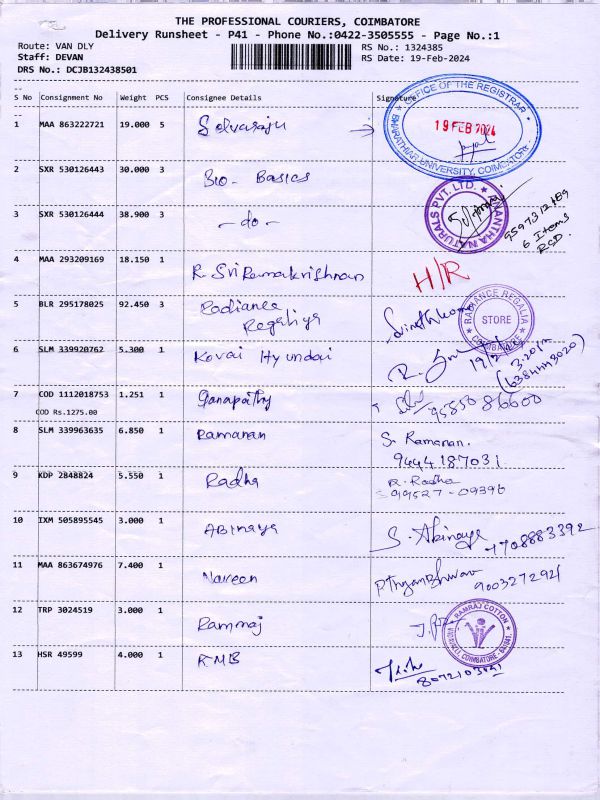 THE PROFESSIONAL COURIERS, COIMBATORE
Delivery Runsheet - P41 - Phone No.:0422-3505555 - Page No.:1
Route: VAN DLY
RS No.: 1324385
Staff: DEVAN
RS Date: 19-Feb-2024
DRS No.: DCJB132438501
S No Consignment No Weight PCS Consignee Details Signature
OFFICE OF THE REGISTRAR
19 FEB 2024
BHARATHIAR UNIVERSITY, COIMBATORE
1 MAA 863222721 19.000 5 Selvaraju
2 SXR 530126443 30.000 3 Bio - Basics
ANANTHA NATURALS PVT. LTD.
3 SXR 530126444 38.900 3 - do -
9597312189
6 Items
RCD.
4 MAA 293209169 18.150 1 R. Sri Ramakrishnan H/R
5 BLR 295178025 92.450 3 Radiance
Regaliya
RADIANCE REGALIA
STORE
COIMBATORE
6 SLM 339920762 5.300 1 Kovai Hyundai
19/2/
(6384449020)
7 COD 1112018753 1.251 1 Ganapathy 95850 86600
COD Rs.1275.00
8 SLM 339963635 6.850 1 Ramanan S. Ramanan.
9444187031
9 KDP 2848824 5.550 1 Radha R. Radha
99527-09396
10 IXM 505895545 3.000 1 Abinaya S. Abinaya
7708883392
11 MAA 863674976 7.400 1 Naveen
9003272921
12 TRP 3024519 3.000 1 Ramraj
RAMRAJ COTTON
COIMBATORE - 641041.
13 HSR 49599 4.000 1 RMB
8072103041